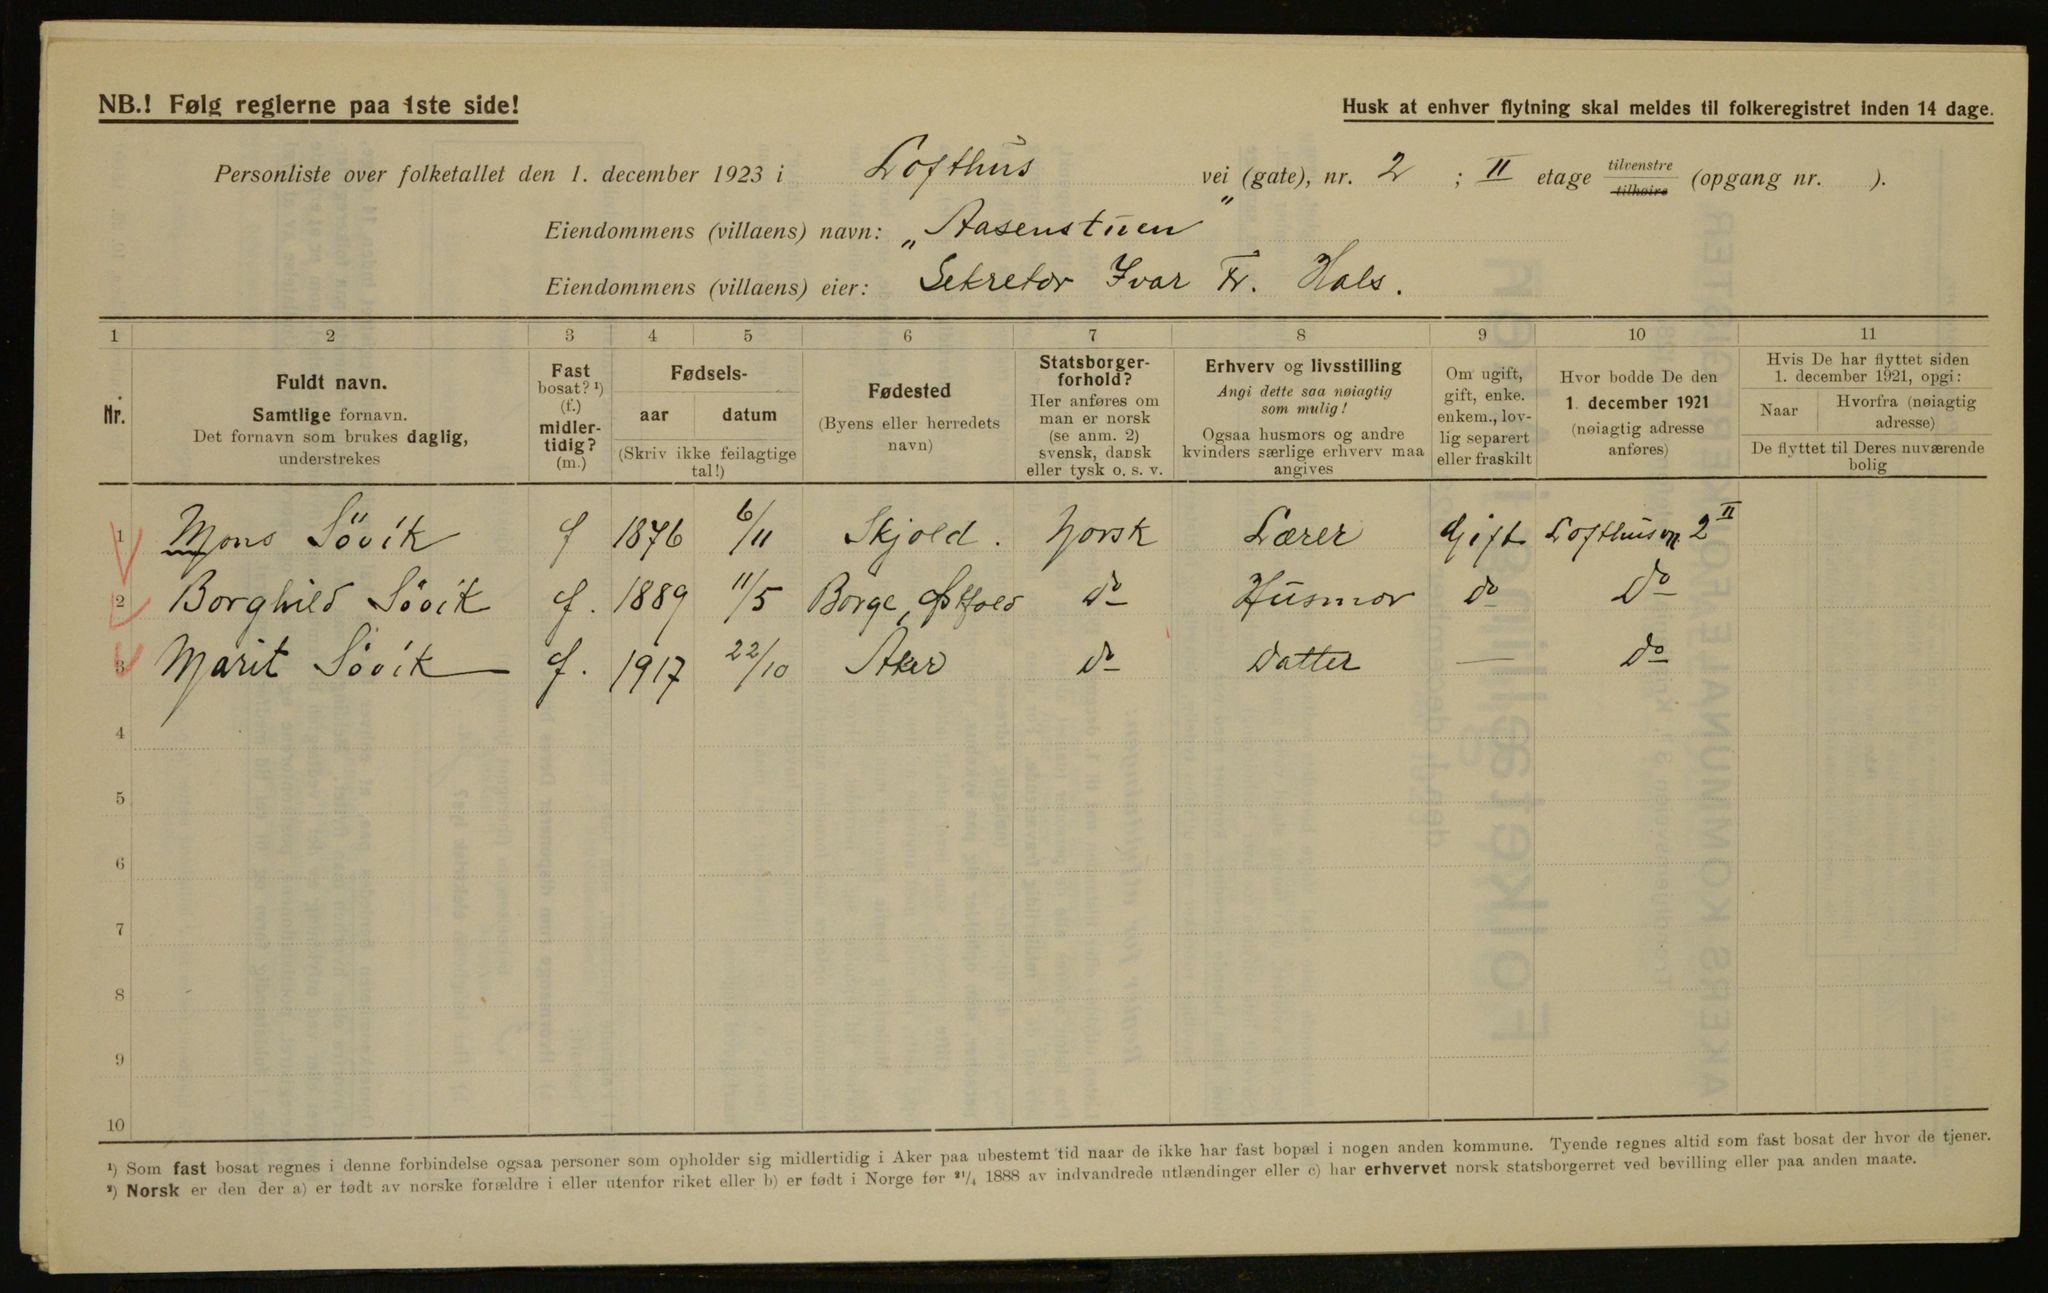 NB.! Følg reglerne paa 1ste side!
Husk at enhver flytning skal meldes til folkeregistret inden 14 dage.
Personliste over folketallet den 1. december 1923 i Lofthus vei (gate), nr. 2 ; II etage tilvenstre tilhøire (opgang nr. ).
Eiendommens (villaens) navn: „Aasenstuen"
Eiendommens (villaens) eier: Sekretær Ivar Fr. Hals.
1 2 3 4 5 6 7 8 9 10 11
Nr.
Fuldt navn.
Samtlige fornavn.
Det fornavn som brukes daglig,
understrekes
Fast
bosat? ¹)
(f.)
midler-
tidig?
(m.)
Fødsels-
aar datum
(Skriv ikke feilagtige
tal!)
Fødested
(Byens eller herredets
navn)
Statsborger-
forhold?
Her anføres om
man er norsk
(se anm. 2)
svensk, dansk
eller tysk o. s. v.
Erhverv og livsstilling
Angi dette saa nøiagtig
som mulig!
Ogsaa husmors og andre
kvinders særlige erhverv maa
angives
Om ugift,
gift, enke.
enkem., lov-
lig separert
eller fraskilt
Hvor bodde De den
1. december 1921
(nøiagtig adresse
anføres)
Hvis De har flyttet siden
1. december 1921, opgi:
Naar
Hvorfra (nøiagtig
adresse)
De flyttet til Deres nuværende
bolig
1 Mons Sövik f 1876 6/11 Skjold. Norsk Lærer Gift Lofthusvn 2 II
2 Borghild Sövik f. 1889 11/5 Borge, Østfold do Husmor do do
3 Marit Sövik f. 1917 22/10 Aker do Datter — do
4
5
6
7
8
9
10
¹) Som fast bosat regnes i denne forbindelse ogsaa personer som opholder sig midlertidig i Aker paa ubestemt tid naar de ikke har fast bopæl i nogen anden kommune. Tyende regnes altid som fast bosat der hvor de tjener.
²) Norsk er den der a) er født av norske forældre i eller utenfor riket eller b) er født i Norge før ²¹/₄ 1888 av indvandrede utlændinger eller c) har erhvervet norsk statsborgerret ved bevilling eller paa anden maate.